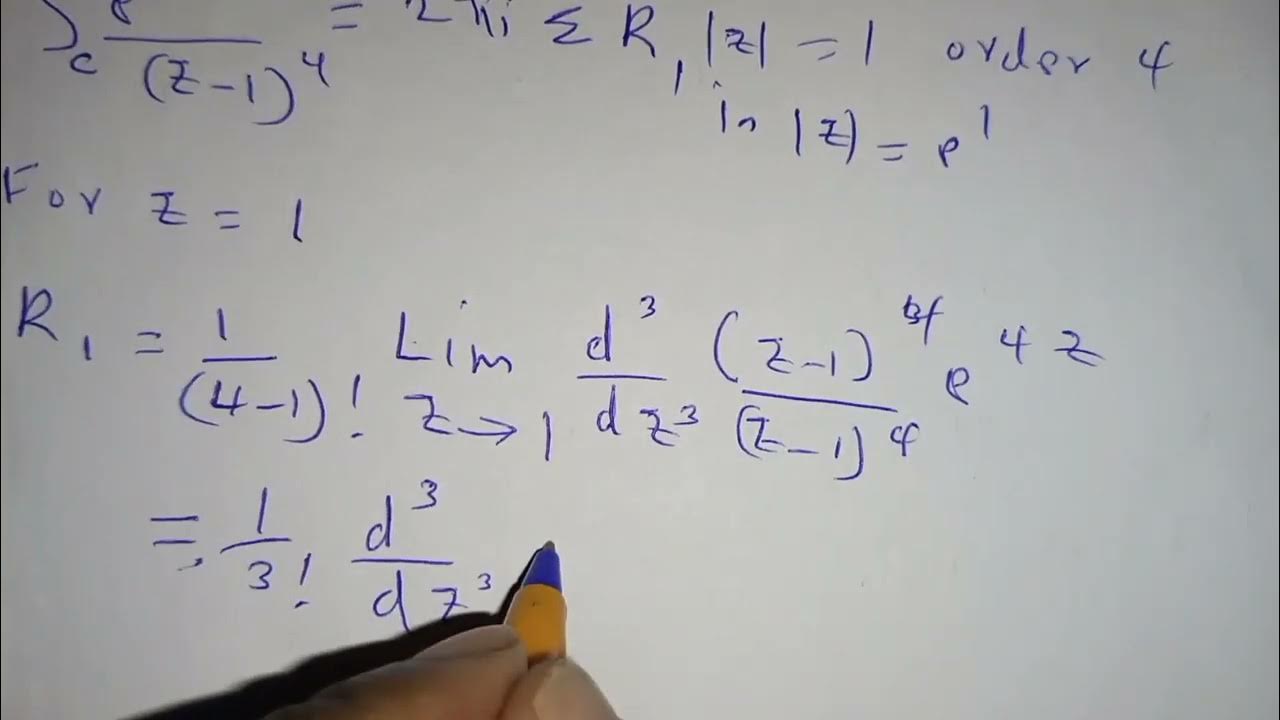 ∫_c e / (z-1)^4 = 2πi Σ R₁, |z| = 1 order 4
in |z| = e^1
For z = 1
R₁ = 1/(4-1)! Lim z→1 d³/dz³ (z-1)^4/(z-1)^4 e^4z
= 1/3! d³/dz³